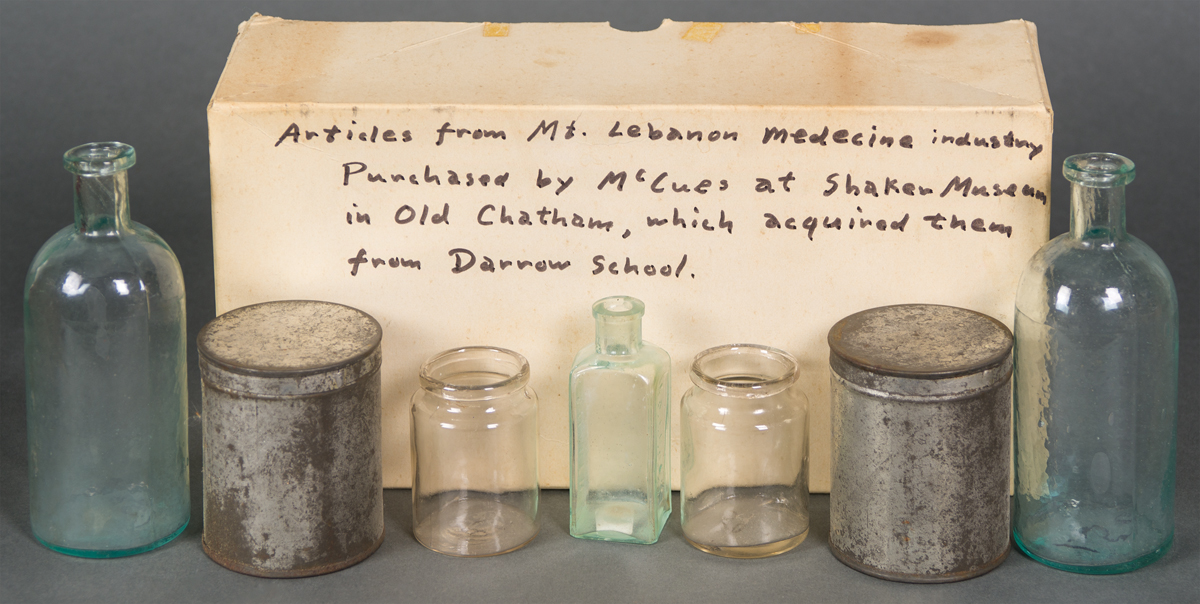 Articles from Mt. Lebanon medecine industry
Purchased by McCues at Shaker Museum
in Old Chatham, which acquired them
from Darrow School.